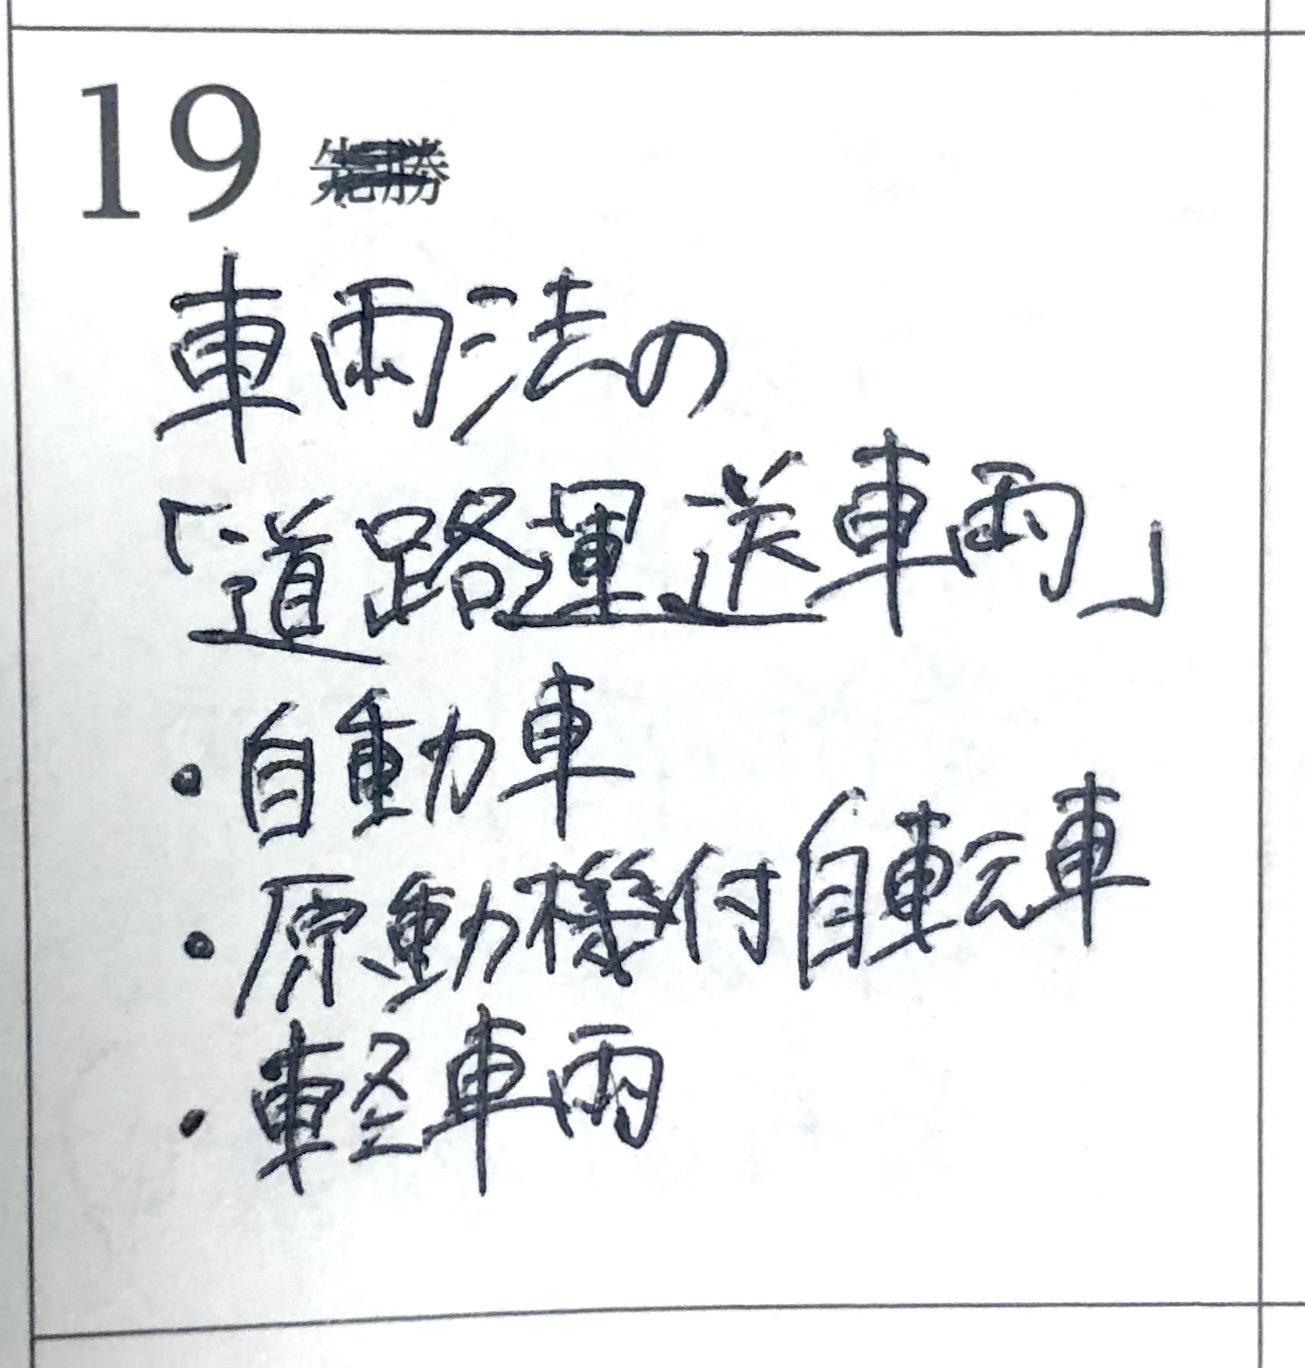 19 先勝
車両法の
「道路運送車両」
・自動車
・原動機付自転車
・軽車両